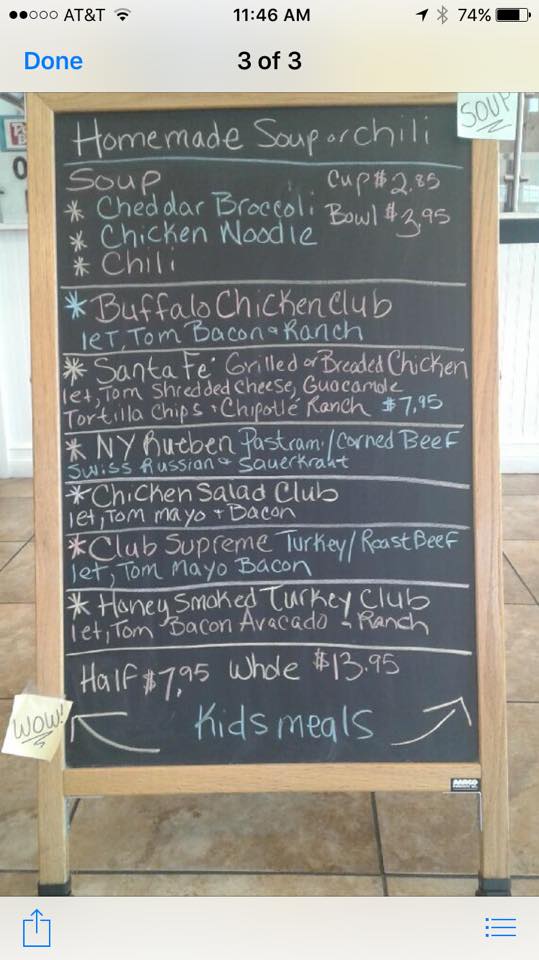 AT&T 11:46 AM 74%
Done 3 of 3
SOUP
Homemade Soup or chili
Soup Cup $2.85
* Cheddar Broccoli Bowl $3.95
* Chicken Noodle
* Chili
* Buffalo Chicken Club
let, Tom Bacon & Ranch
* Santa Fe' Grilled or Breaded Chicken
let, Tom Shredded Cheese, Guacamole
Tortilla Chips & Chipotle Ranch $7.95
* NY Rueben Pastrami/Corned Beef
Swiss Russian & Sauerkraut
* Chicken Salad Club
let, Tom mayo + Bacon
* Club Supreme Turkey/Roast Beef
let, Tom Mayo Bacon
* Honey Smoked Turkey Club
let, Tom Bacon Avacado & Ranch
Half $7.95 Whole $13.95
WOW!
Kids meals